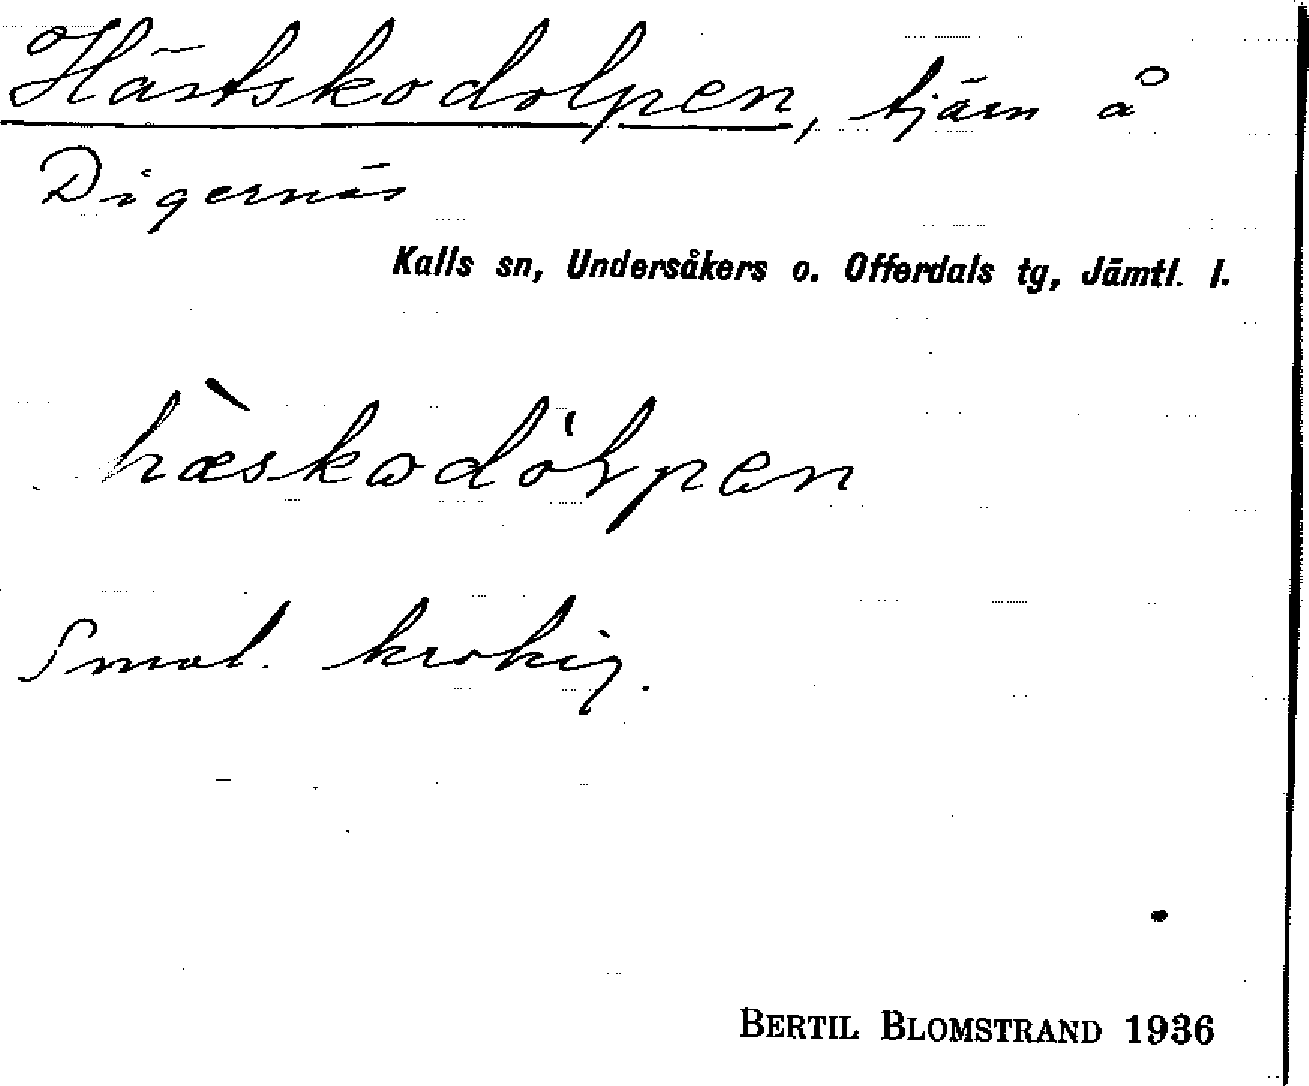 Hästskodolpen, tjärn å
Digernäs
Kalls sn, Undersåkers o. Offerdals tg, Jämtl. l.
hæ̀skodòlpen
Smal. krokig.
BERTIL BLOMSTRAND 1936